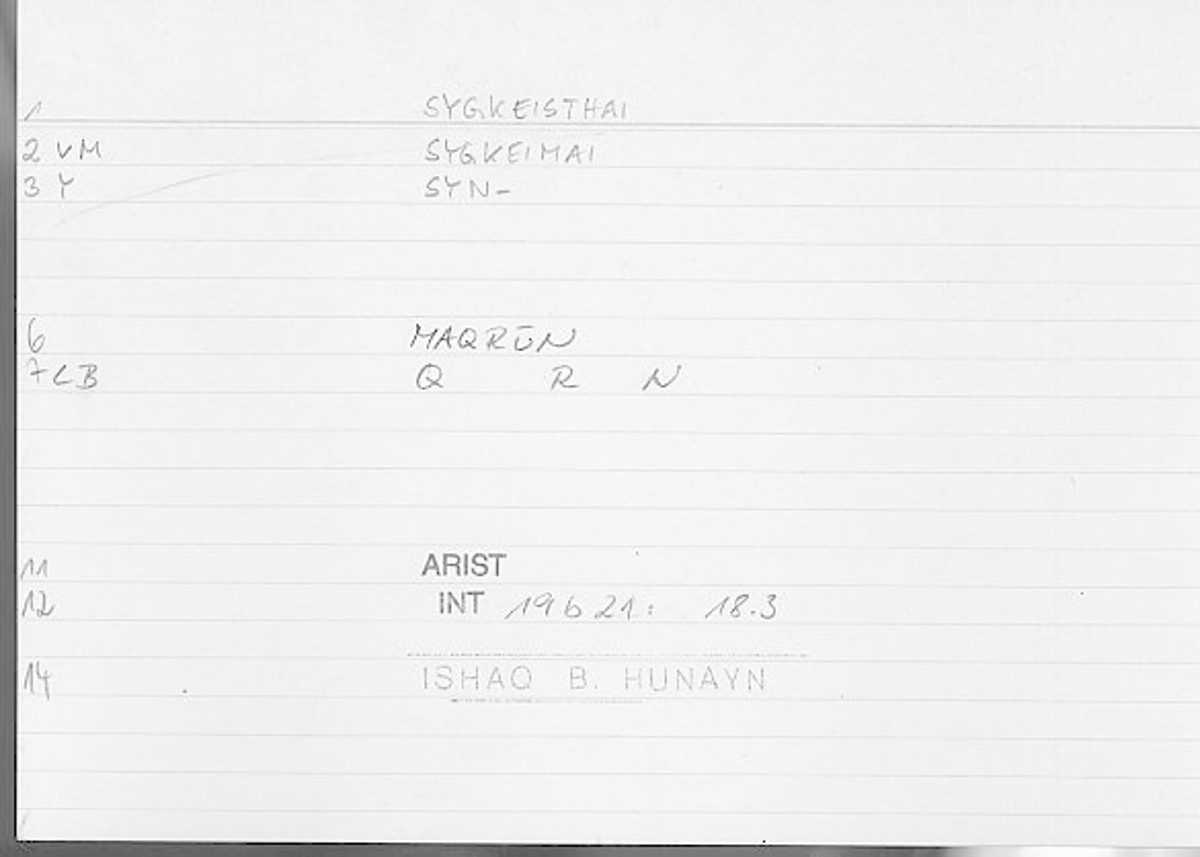 1 SYGKEISTHAI
2 VM SYGKEIMAI
3 Y SYN-
6 MAQRŪN
7 LB Q R N
11 ARIST
12 INT 19 b 21: 18.3
14 ISHAQ B. HUNAYN